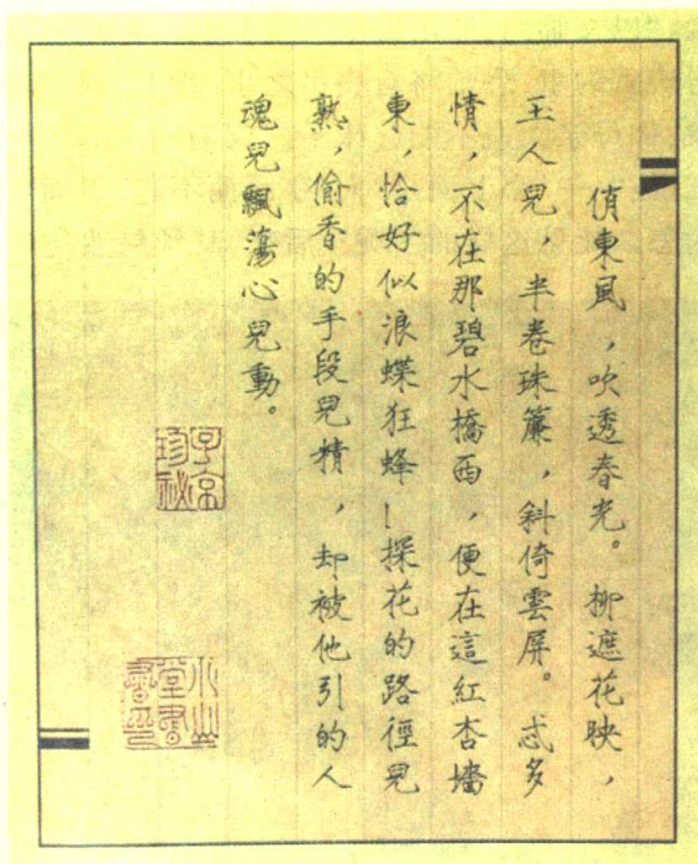 俏東風，吹透春光。柳遮花映，
玉人兒，半卷珠簾，斜倚雲屏。忒多
情，不在那碧水橋西，便在這紅杏墻
東，恰好似浪蝶狂蜂—探花的路徑兒
熟，偷香的手段兒精，却被他引的人
魂兒飄蕩心兒動。
子京
珍祕